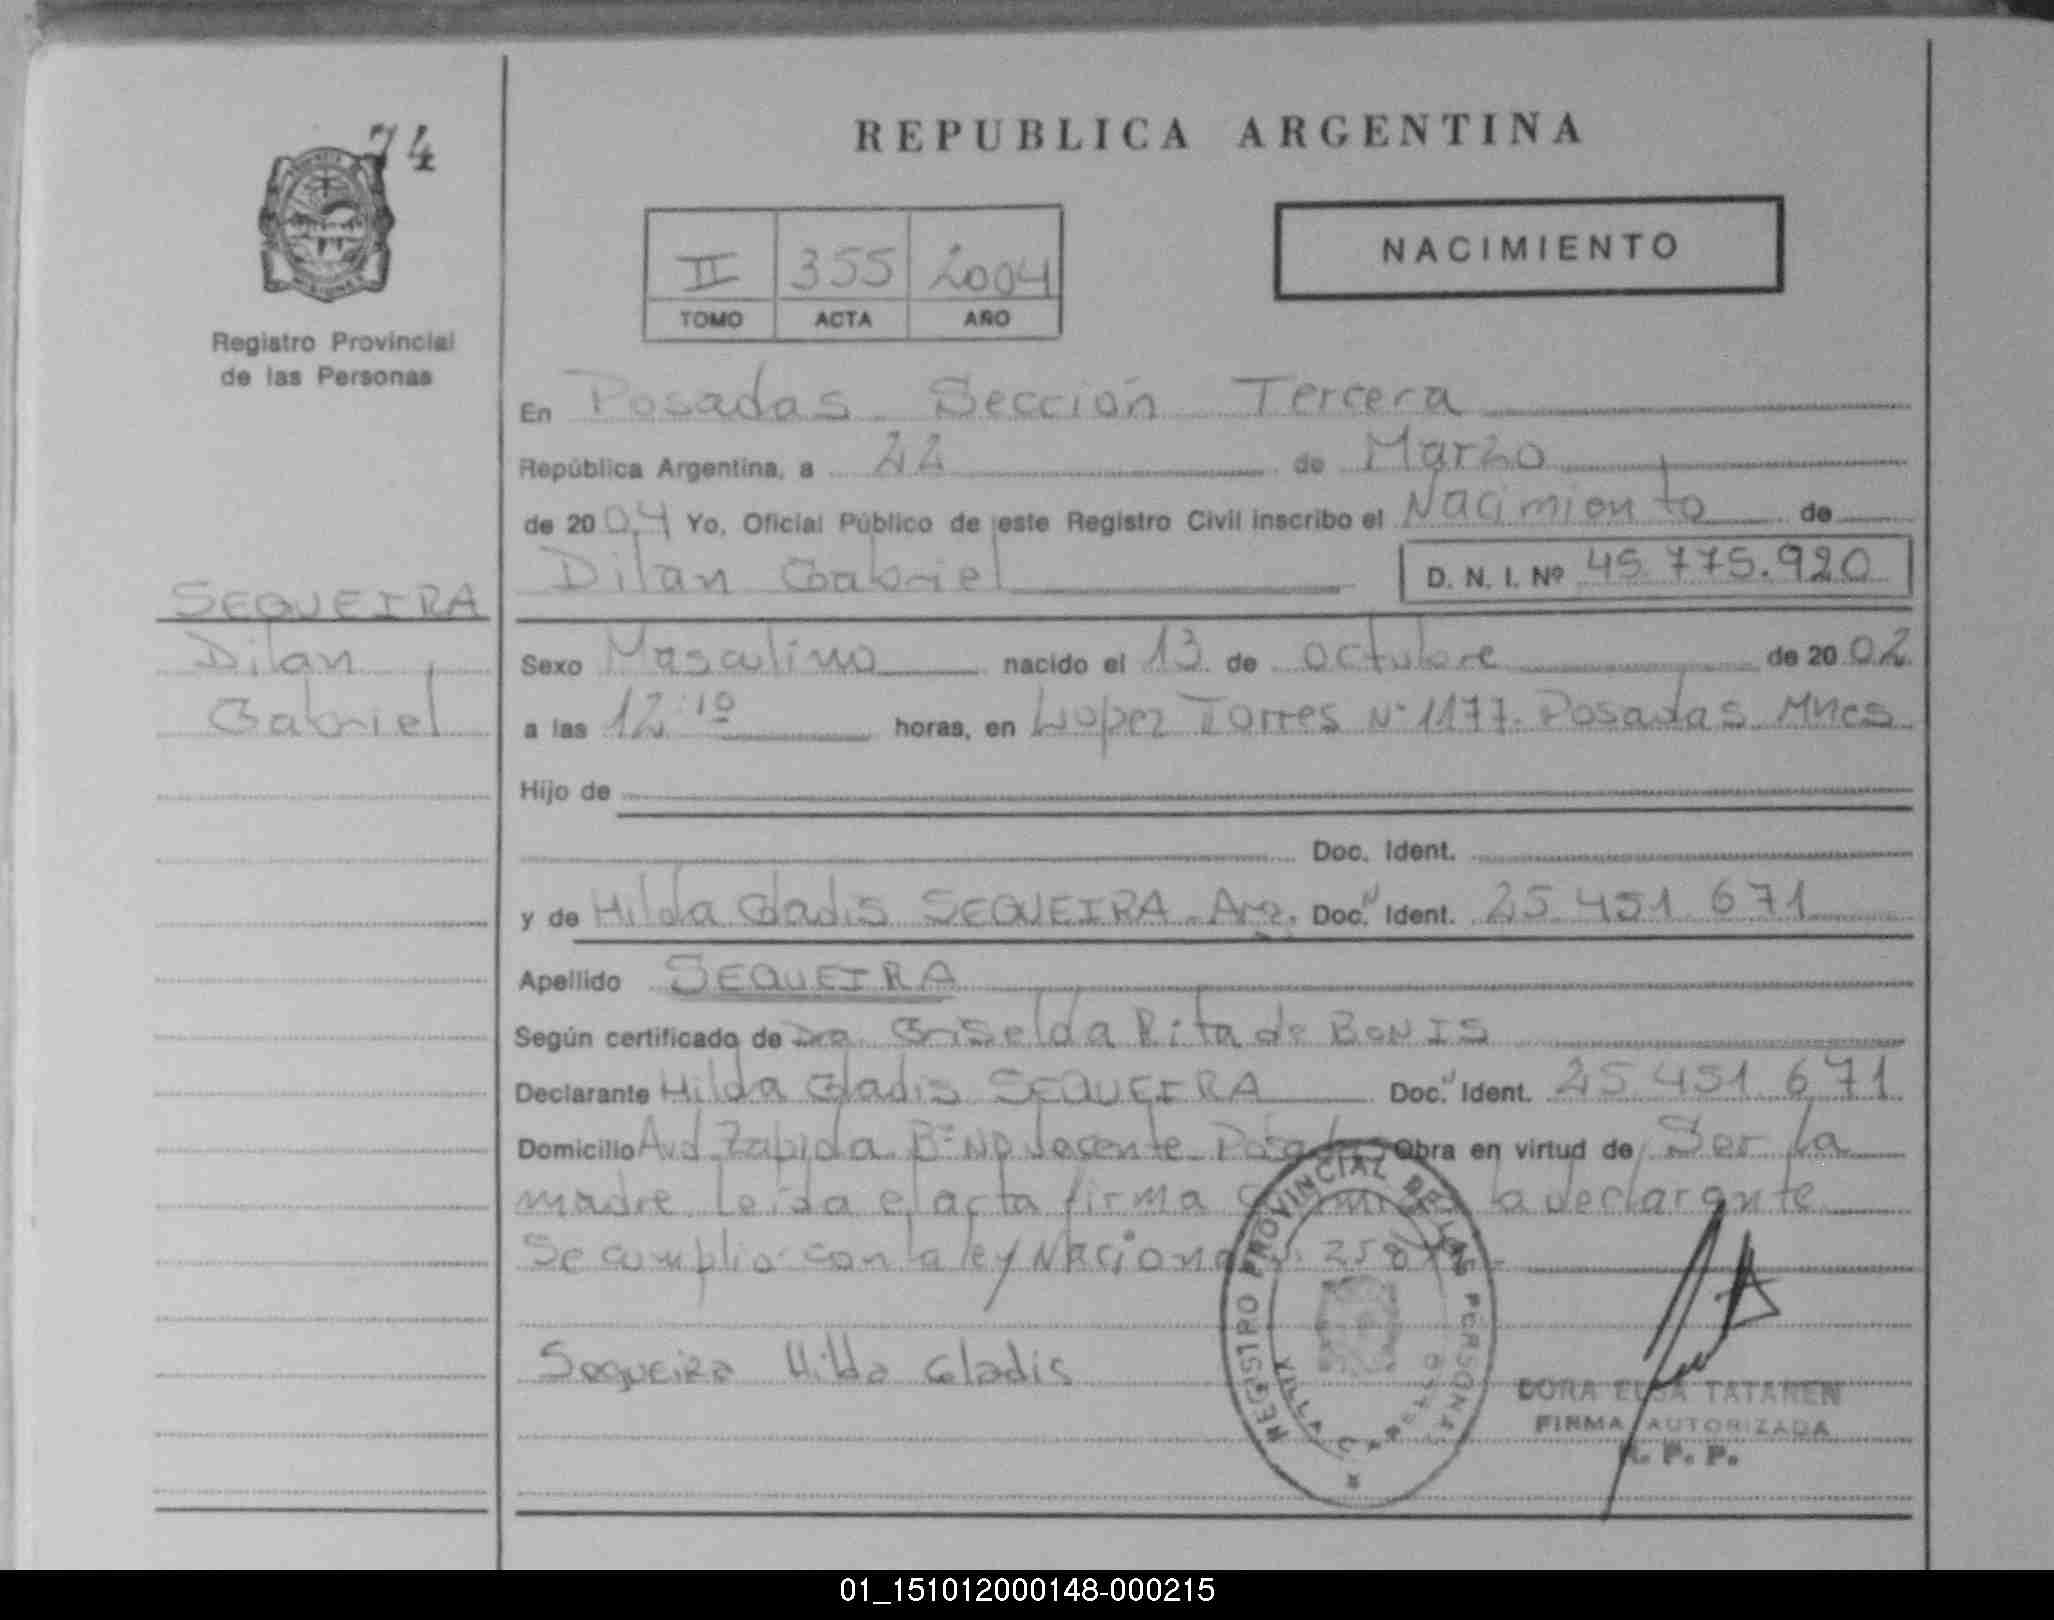 74
REPUBLICA ARGENTINA
NACIMIENTO
II 355 2004
TOMO ACTA AÑO
Registro Provincial
de las Personas
En Posadas Sección Tercera
República Argentina, a 22 de Marzo
de 2004 Yo, Oficial Público de este Registro Civil inscribo el Nacimiento de
Dilan Gabriel D. N. I. Nº 45.775.920
SEQUEIRA
Dilan
Gabriel
Sexo Masculino nacido el 13 de octubre de 2002
a las 12:10 horas, en Lopez Torres Nº 1177. Posadas Mnes
Hijo de
Doc. Ident.
y de Hilda Gladis SEQUEIRA Arg. Doc. Ident. 25 451 671
Apellido SEQUEIRA
Según certificado de Dra. Griselda Rita de BONIS
Declarante Hilda Gladis SEQUEIRA Doc. Ident. 25.451.671
Domicilio Avd. Bº Posadas Obra en virtud de Ser la
madre. Leida el acta firma la declarante
Se cumplio con la ley Nacional
Sequeira Hilda Gladis
REGISTRO PROVINCIAL DE LAS PERSONAS
VILLA CABELLO
DORA ELSA TATAREN
FIRMA AUTORIZADA
R. P. P.
01_151012000148-000215